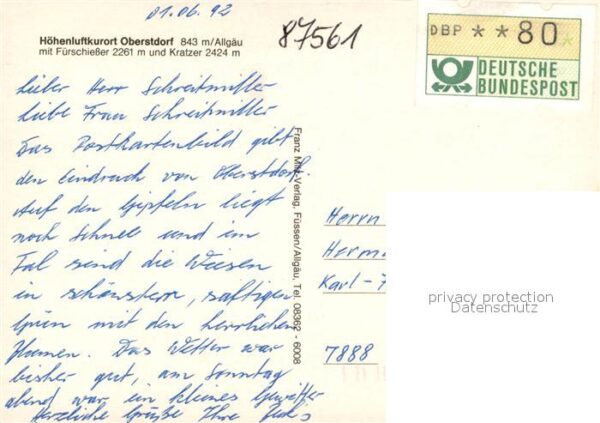 01.06.92
87561
Höhenluftkurort Oberstdorf 843 m/Allgäu
mit Fürschießer 2261 m und Kratzer 2424 m
DBP **80*
DEUTSCHE
BUNDESPOST
lieber Herr Schreitmüller
liebe Frau Schreitmüller
Das Postkartenbild gibt
den Eindruck von Oberstdorf.
Auf den Gipfeln liegt
noch Schnee und im
Tal sind die Wiesen
in schönstem, saftigen
Grün mit den herrlichen
Blumen. Das Wetter war
bisher gut, am Sonntag
abend war ein kleines Gewitter
Herzliche Grüße Ihre
Franz Milz-Verlag, Füssen/Allgäu, Tel. 08362 - 6008
Herrn
Herma
Karl-
7888
privacy protection
Datenschutz